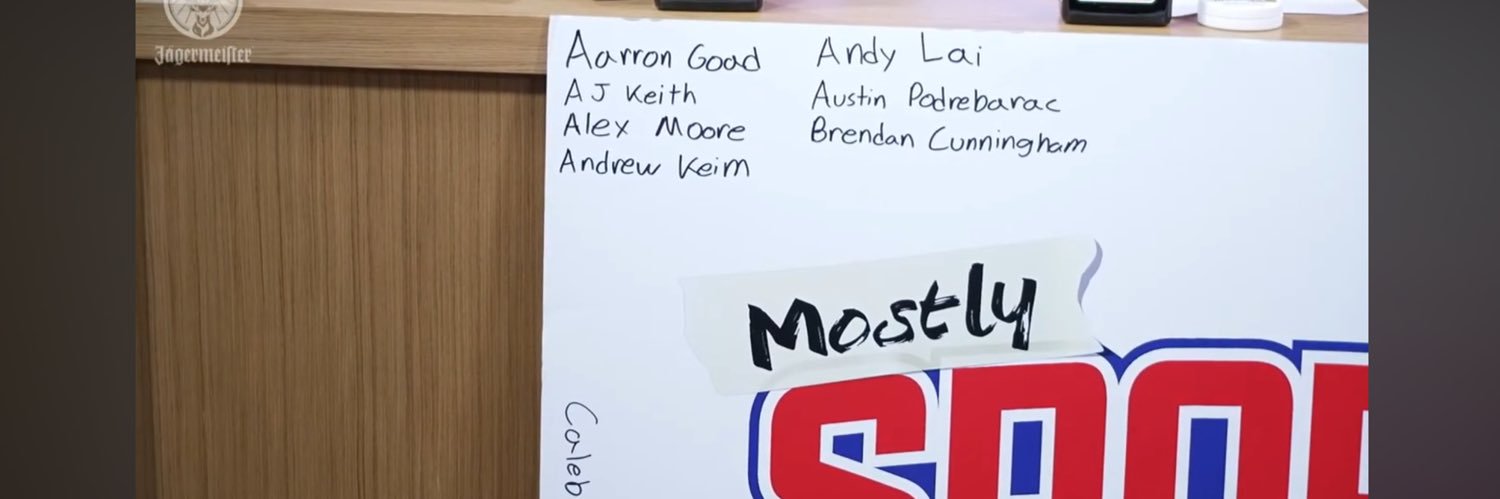 Jägermeister
Aarron Goad
AJ Keith
Alex Moore
Andrew Keim
Andy Lai
Austin Podrebarac
Brendan Cunningham
Mostly
SPOR
Caleb